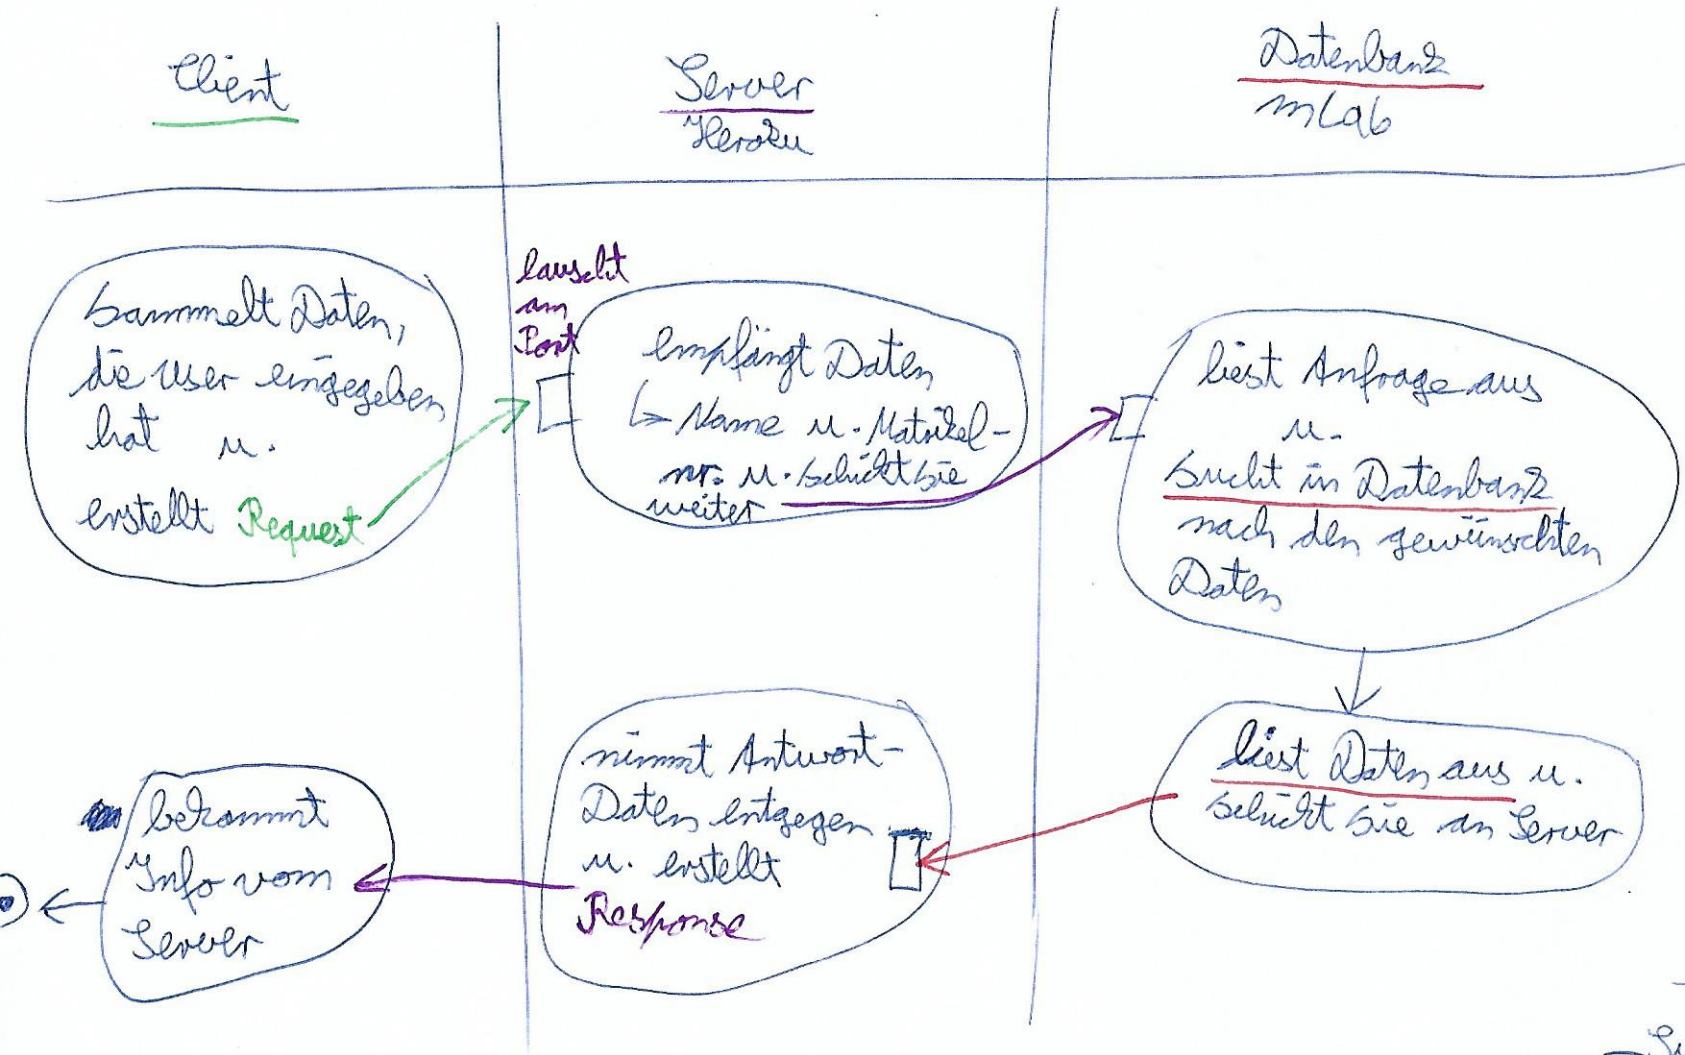 Client
Server
Heroku
Datenbank
mLab
sammelt Daten,
die User eingegeben
hat u.
erstellt Request
lauscht
am
Port
empfängt Daten
↳ Name u. Matrikel-
nr. u. schickt sie
weiter
liest Anfrage aus
u.
sucht in Datenbank
nach den gewünschten
Daten
liest Daten aus u.
schickt sie an Server
nimmt Antwort-
Daten entgegen
u. erstellt
Response
bekommt
Info vom
Server